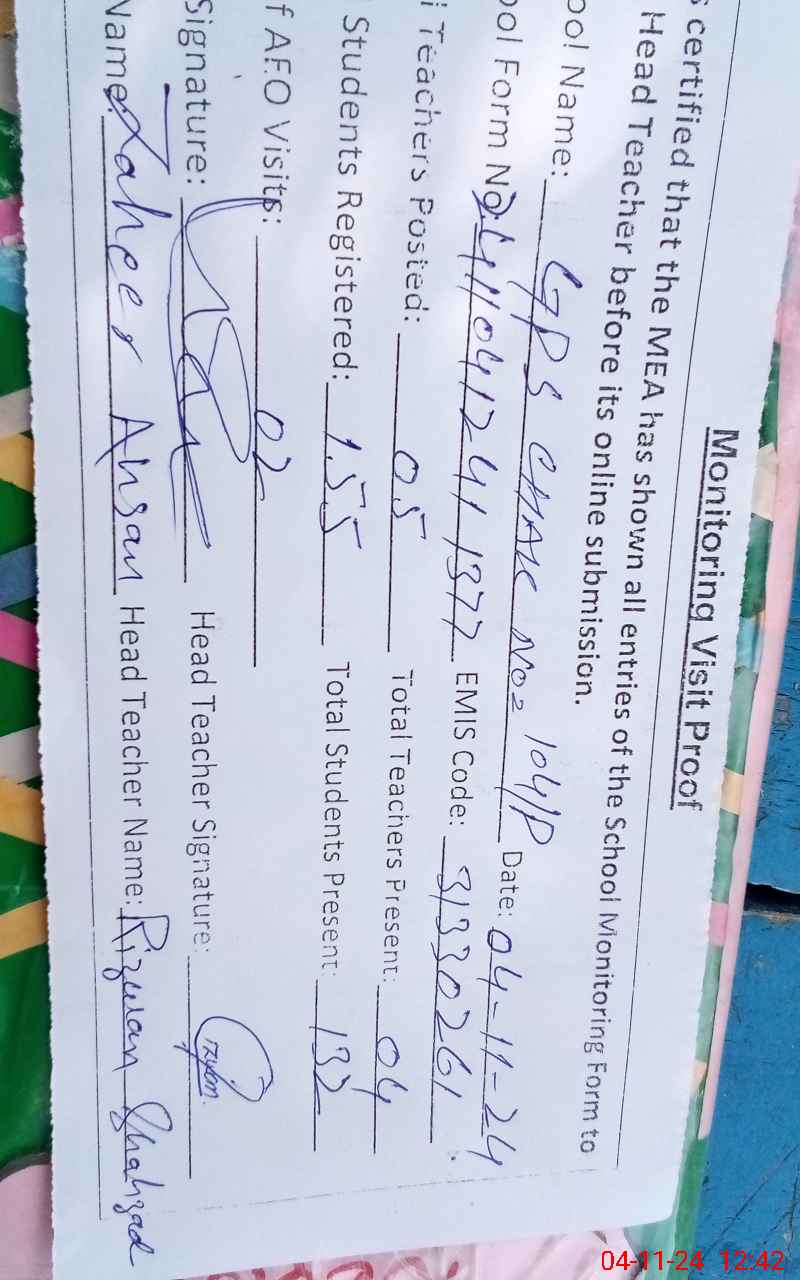 Monitoring Visit Proof
s certified that the MEA has shown all entries of the School Monitoring Form to
Head Teacher before its online submission.
ool Name: GPS CHAK No= 104/P Date: 04-11-24
ool Form No 2411041241 1377 EMIS Code: 31330261
l Teachers Posted: 05 Total Teachers Present: 04
Students Registered: 155 Total Students Present: 132
f AEO Visits: 02
Signature: Head Teacher Signature:
Name: Zaheer Ahsan Head Teacher Name: Rizwan Shahzad
04-11-24 12:42